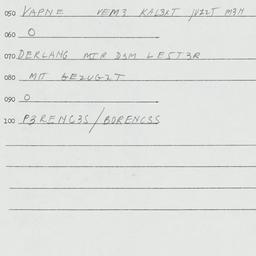 050 VAPNE VEM3 KAL3XT JVZZT M3M
060 O
070 DERLANG MTR D3M LEST3R
080 MIT GEZUGZT
090 O
100 P3RENC3S/BORENCSS